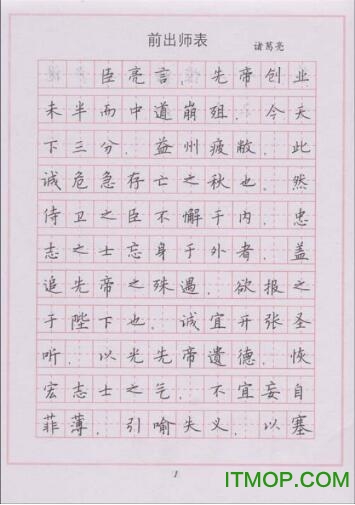 前出师表
诸葛亮
臣亮言.先帝创业
未半而中道崩殂.今天
下三分.益州疲敝.此
诚危急存亡之秋也.然
侍卫之臣不懈于内.忠
志之士忘身于外者.盖
追先帝之殊遇.欲报之
于陛下也.诚宜开张圣
听.以光先帝遗德.恢
宏志士之气.不宜妄自
菲薄.引喻失义.以塞
1
ITMOP.COM